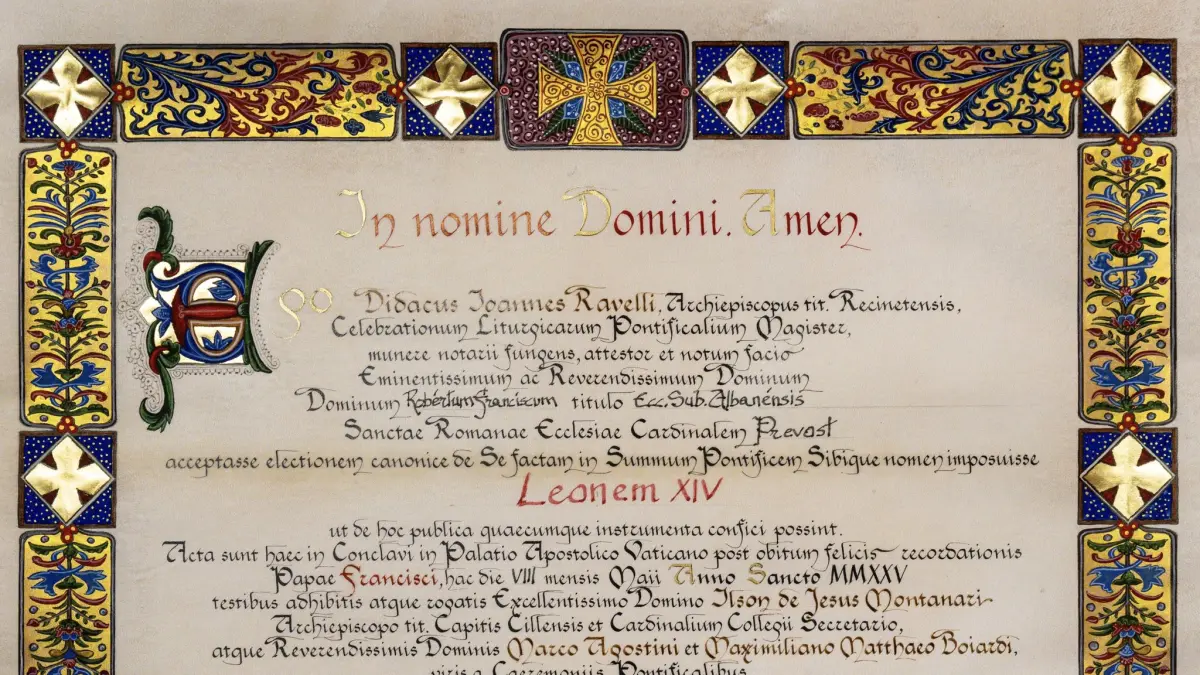 In nomine Domini. Amen.
Ego Didacus Ioannes Ravelli, Archiepiscopus tit. Recinetensis,
Celebrationum Liturgicarum Pontificalium Magister,
munere notarii fungens, attestor et notum facio
Eminentissimum ac Reverendissimum Dominum
Dominum Robertum Franciscum titulo Ecc. Sub. Albanensis
Sanctae Romanae Ecclesiae Cardinalem Prevost
acceptasse electionem canonice de Se factam in Summum Pontificem Sibique nomen imposuisse
Leonem XIV
ut de hoc publica quaecumque instrumenta confici possint.
Acta sunt haec in Conclavi in Palatio Apostolico Vaticano post obitum felicis recordationis
Papae Francisci, hac die VIII mensis Maii Anno Sancto MMXXV
testibus adhibitis atque rogatis Excellentissimo Domino Ilson de Jesus Montanari
Archiepiscopo tit. Capitis Cillensis et Cardinalium Collegii Secretario,
atque Reverendissimis Dominis Marco Agostini et Maximiliano Matthaeo Boiardi,
viris a Caeremoniis Pontificalibus